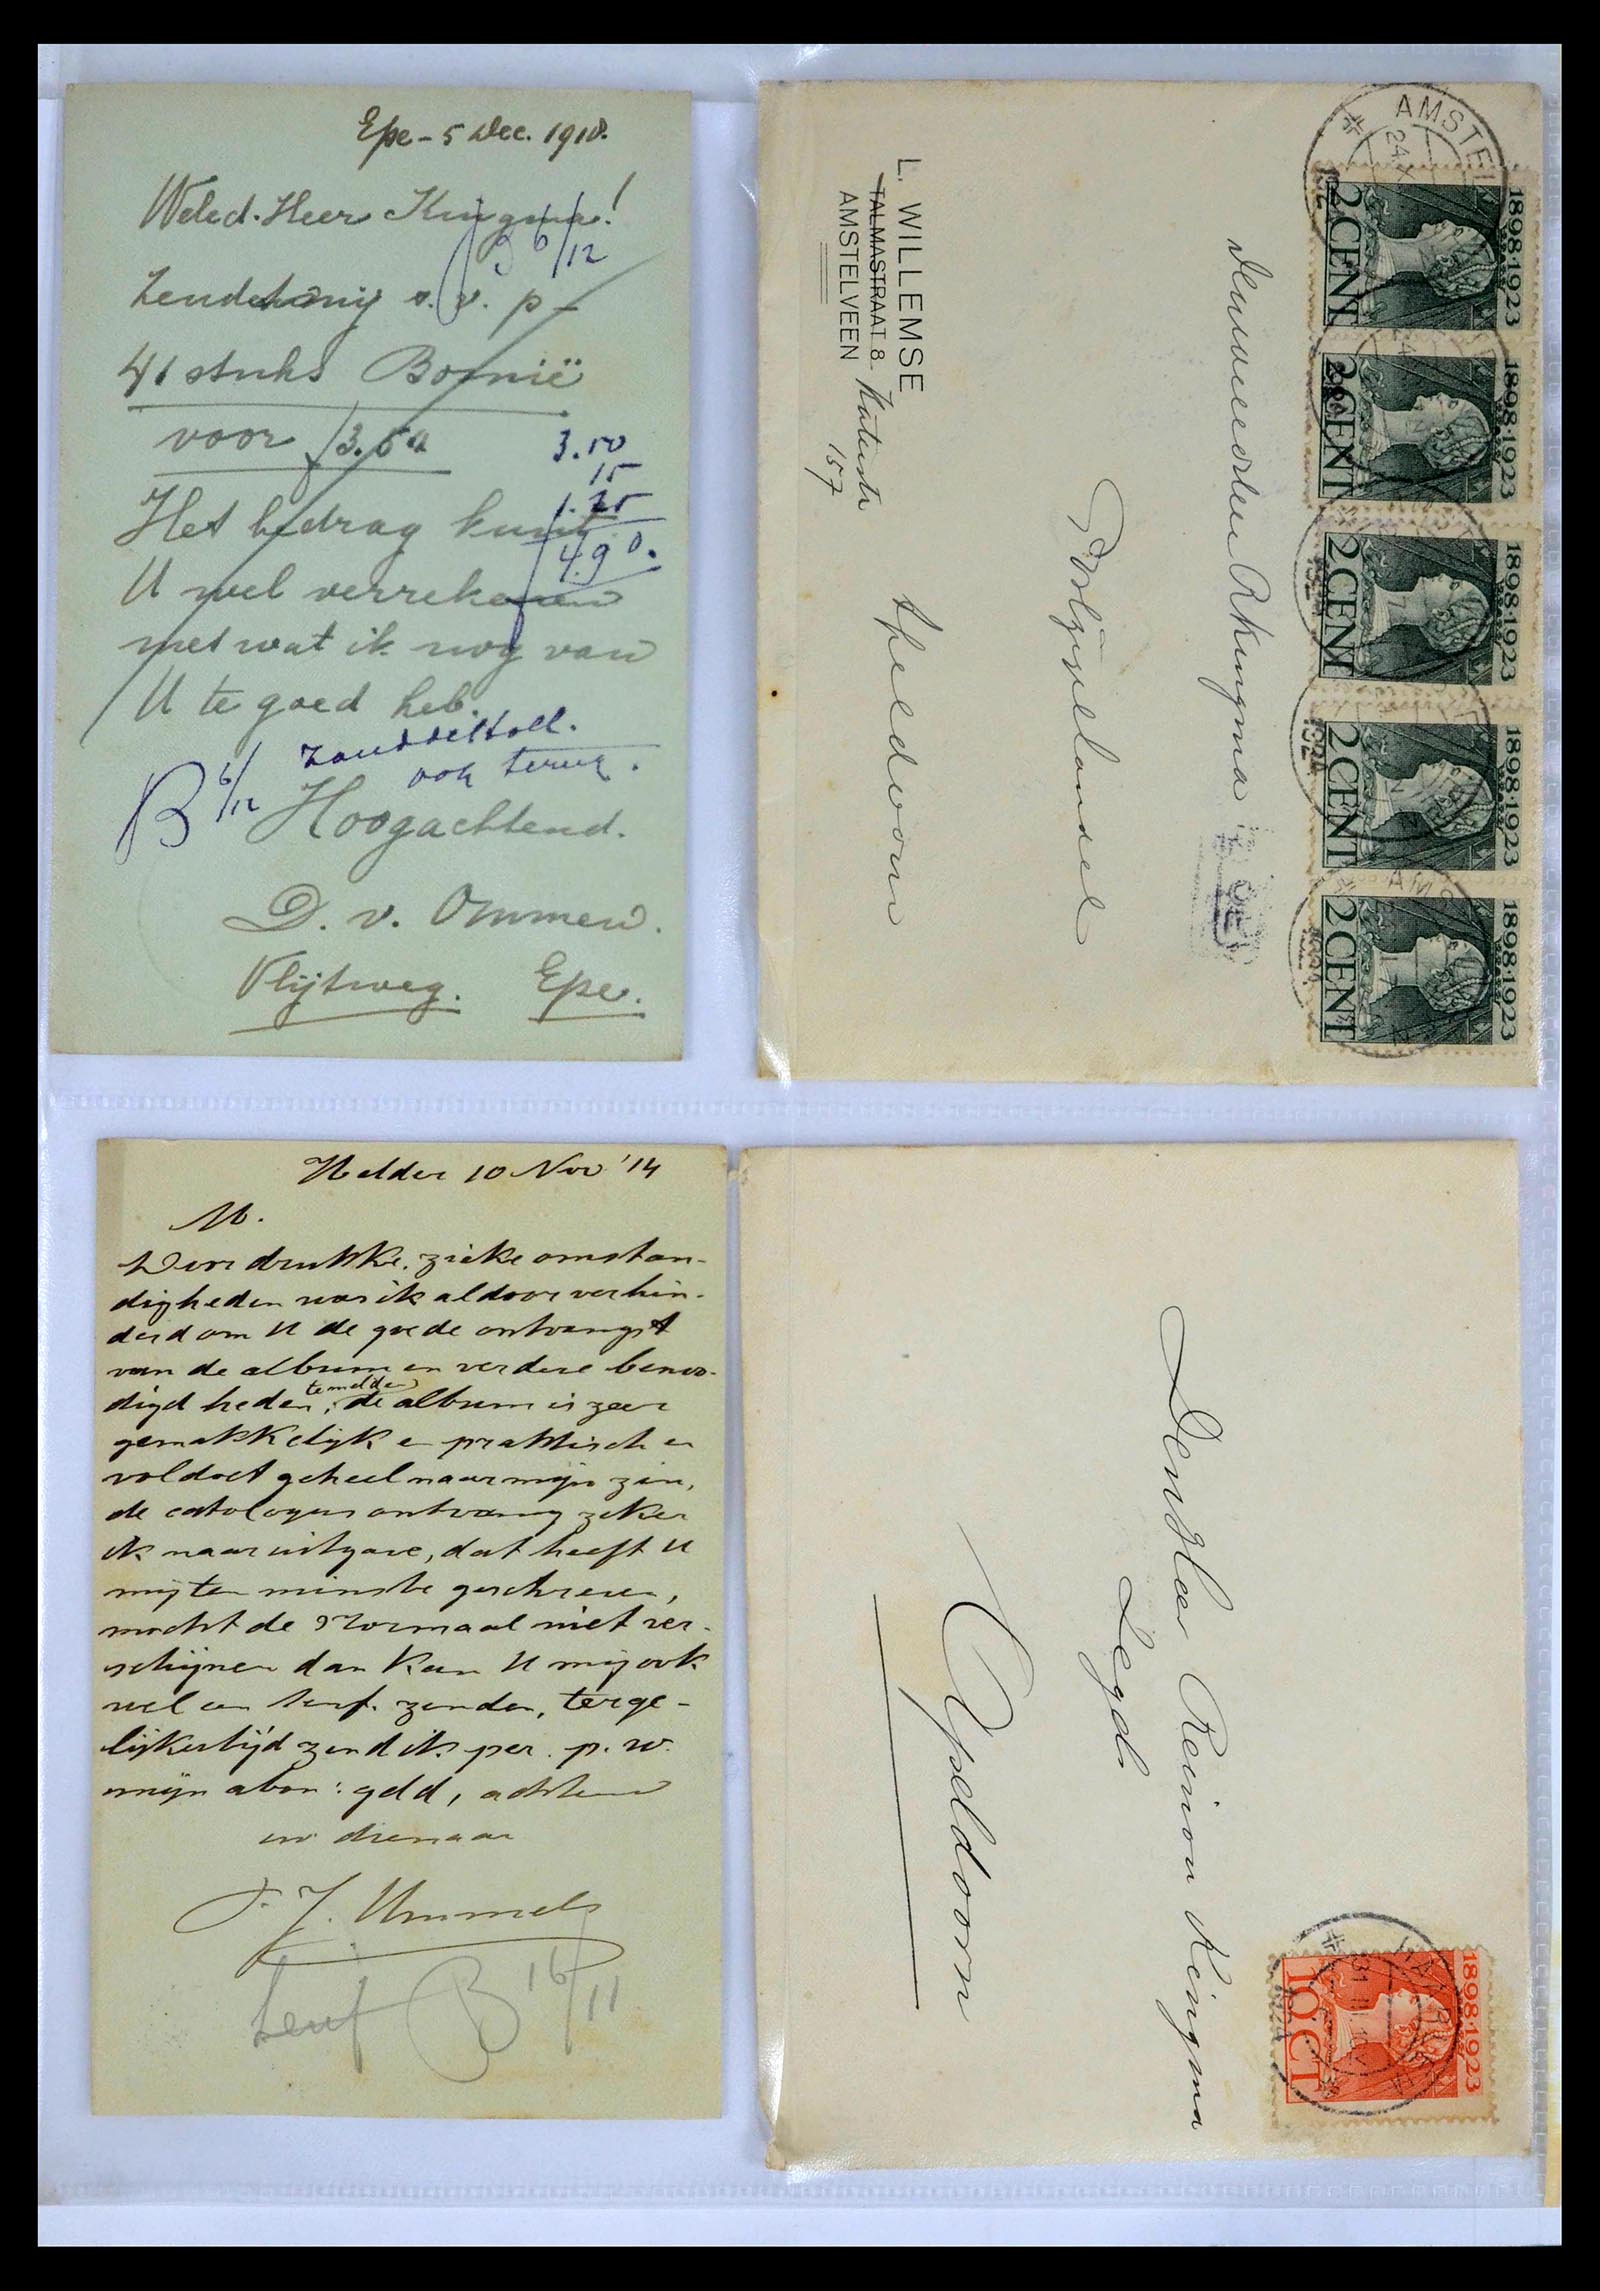 Epe - 5 Dec. 1918.
Weled. Heer Kingma!
6/12
Zendt mij s.v.p.
41 stuks Bosnië
voor f 3.50
3.50
15
1.25
4.90.
Het bedrag kunt
U wel verrekenen
met wat ik nog van
U te goed heb.
ook terug.
B 6/12
Hoogachtend.
D. v. Ommen.
Vlijtweg. Epe.
AMSTEL
1898·1923
2 CENT
1898·1923
2 CENT
1898·1923
2 CENT
1898·1923
2 CENT
1898·1923
2 CENT
Kingma
Postzegelhandel
Apeldoorn
L. WILLEMSE
TALMASTRAAT 8
AMSTELVEEN
157
Helder 10 Nov '14
M.
Door drukke, zieke omstan-
digheden was ik aldoor verhin-
derd om U de goede ontvangst
van de album en verdere benoo-
digdheden te melden, de album is zeer
gemakkelijk en praktisch en
voldoet geheel naar mijn zin,
de catologus ontvang zeker
ik naar uitgave, dat heeft U
mij ten minste geschreven,
mocht de Normaal niet ver-
schijnen dan kan U mij ook
wel een Senf. zenden, terge-
lijkertijd zend ik per. p.w.
mijn abon: geld, achtend
uw dienaar
J. Ummels
Senf B 16/11
1898·1923
10 CT
HAARLEM
Den Heer Reinou Kingma
Apeldoorn